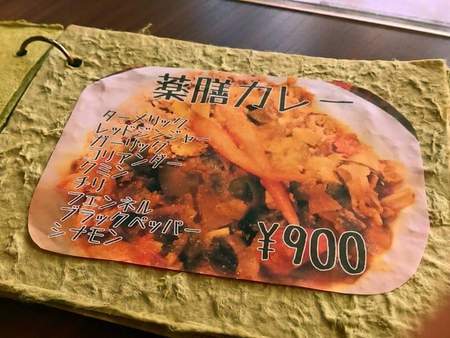 薬膳カレー
ターメリック
レッドジンジャー
ガーリック
コリアンダー
クミン
チリ
フェンネル
ブラックペッパー
シナモン
¥900